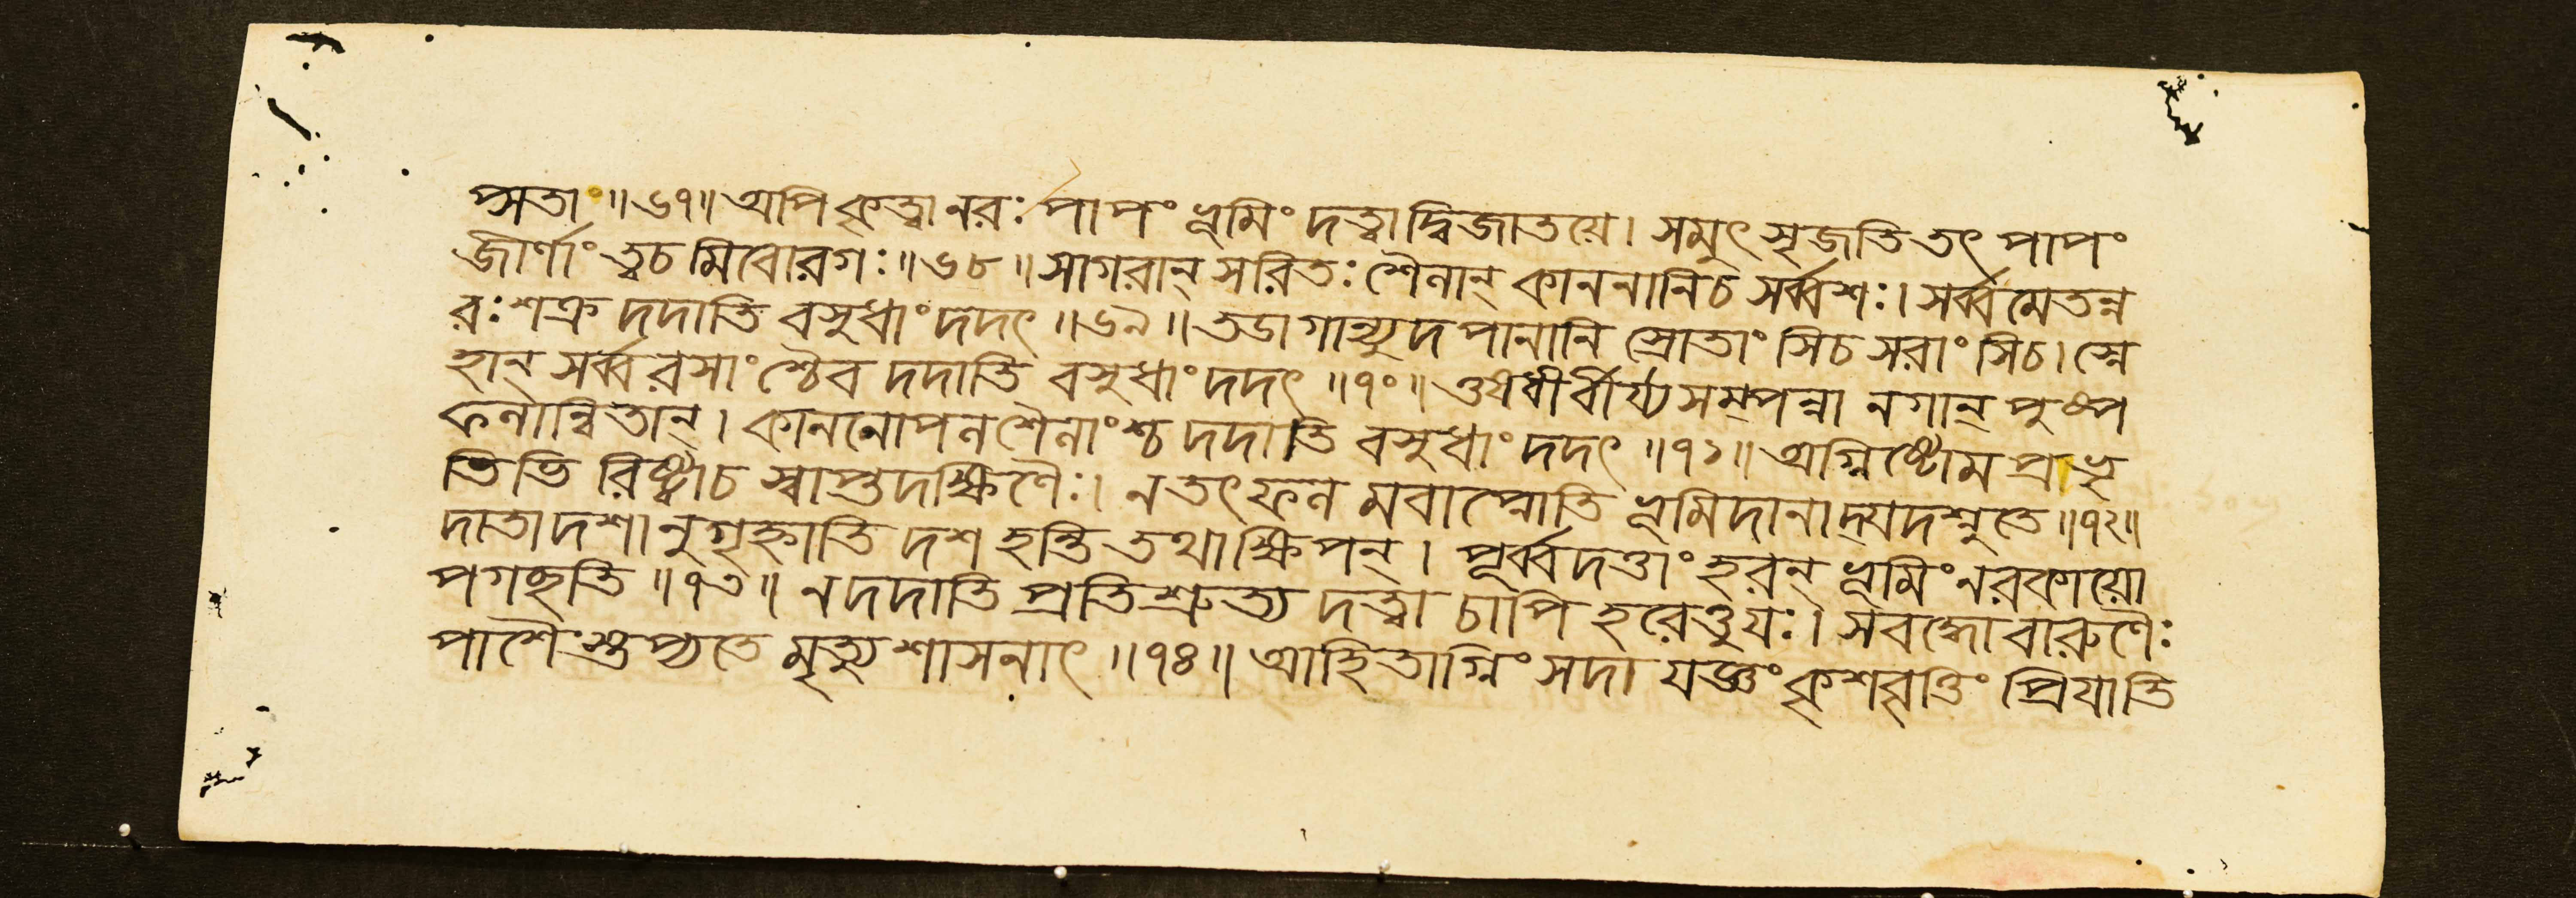 প্সতাং॥৬৭॥অপি কৃত্বা নরঃ পাপং ভূমিং দত্ত্বা দ্বিজাতয়ে। সমুৎসৃজতি তৎ পাপং
জীর্ণাং ত্বচমিবোরগঃ॥৬৮॥সাগরান্ সরিতঃ শৈলান্ কাননানিচ সর্ব্বশঃ। সর্ব্বমেতন্ন
রঃ শক্র দদাতি বসুধাং দদৎ॥৬৯॥তডাগান্যুদপানানি স্রোতাংসিচ সরাংসিচ। স্নে
হান্ সর্ব্বরসাংশ্চৈব দদাতি বসুধাং দদৎ॥৭০॥ওষধীর্বীর্য্যসম্পন্না নগান্ পুষ্প
ফলান্বিতান্। কাননোপলশৈলাংশ্চ দদাতি বসুধাং দদৎ॥৭১॥অগ্নিষ্টোমপ্রভৃ
তিভিরিষ্ট্বাচ স্বাপ্তদক্ষিণৈঃ। ন তৎফলমবাপ্নোতি ভূমিদানাদ্যদশ্নুতে॥৭২॥
দাতা দশানুগৃহ্ণাতি দশ হন্তি তথা ক্ষিপন্। পূর্ব্বদত্তাং হরন্ ভূমিং নরকায়ো
পগচ্ছতি॥৭৩॥ন দদাতি প্রতিশ্রুত্য দত্ত্বা চাপি হরেত্তু যঃ। স বদ্ধো বারুণৈঃ
পাশৈস্তপ্যতে মৃত্যুশাসনাৎ॥৭৪॥আহিতাগ্নিং সদা যজ্ঞং কৃশবৃত্তিং প্রিযাতি